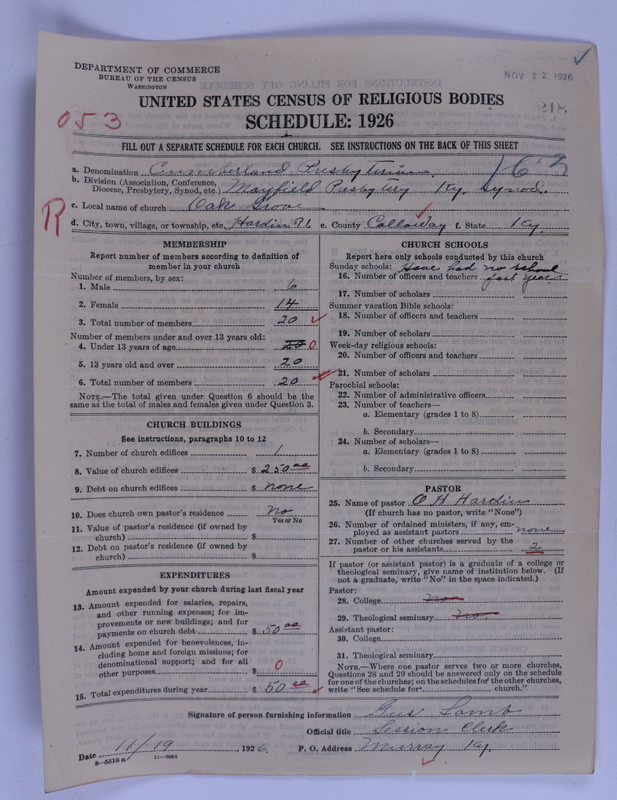 DEPARTMENT OF COMMERCE
BUREAU OF THE CENSUS
WASHINGTON
NOV 22 1926
318
053
UNITED STATES CENSUS OF RELIGIOUS BODIES
SCHEDULE: 1926
FILL OUT A SEPARATE SCHEDULE FOR EACH CHURCH. SEE INSTRUCTIONS ON THE BACK OF THIS SHEET
a. Denomination Cumberland Presbyterian
b. Division (Association, Conference, Diocese, Presbytery, Synod, etc.) Mayfield Presbytery Ky. Synod.
c. Local name of church Oak Grove
R
d. City, town, village, or township, etc. Hardin R1. e. County Calloway f. State Ky.
MEMBERSHIP
Report number of members according to definition of
member in your church
Number of members, by sex:
1. Male 6
2. Female 14
3. Total number of members 20
Number of members under and over 13 years old:
4. Under 13 years of age 20 0
5. 13 years old and over 20
6. Total number of members 20
NOTE.—The total given under Question 6 should be
the same as the total of males and females given under Question 3.
CHURCH BUILDINGS
See instructions, paragraphs 10 to 12
7. Number of church edifices 1
8. Value of church edifices $ 250 00
9. Debt on church edifices $ none
10. Does church own pastor's residence? No
Yes or No
11. Value of pastor's residence (if owned by
church) $
12. Debt on pastor's residence (if owned by
church) $
EXPENDITURES
Amount expended by your church during last fiscal year
13. Amount expended for salaries, repairs,
and other running expenses; for im-
provements or new buildings; and for
payments on church debt $ 50 00
14. Amount expended for benevolences, in-
cluding home and foreign missions; for
denominational support; and for all
other purposes $ 0
15. Total expenditures during year $ 50 00
CHURCH SCHOOLS
Report here only schools conducted by this church
Sunday schools: Have had no school
16. Number of officers and teachers past year
17. Number of scholars
Summer vacation Bible schools:
18. Number of officers and teachers
19. Number of scholars
Week-day religious schools:
20. Number of officers and teachers
21. Number of scholars
Parochial schools:
22. Number of administrative officers
23. Number of teachers—
a. Elementary (grades 1 to 8)
b. Secondary
24. Number of scholars—
a. Elementary (grades 1 to 8)
b. Secondary
PASTOR
25. Name of pastor O A Hardin
(If church has no pastor, write "None")
26. Number of ordained ministers, if any, em-
ployed as assistant pastors none
27. Number of other churches served by the
pastor or his assistants 2
If pastor (or assistant pastor) is a graduate of a college or
theological seminary, give name of institution below. (If
not a graduate, write "No" in the space indicated.)
Pastor:
28. College No
29. Theological seminary No
Assistant pastor:
30. College
31. Theological seminary
NOTE.—Where one pastor serves two or more churches,
Questions 28 and 29 should be answered only on the schedule
for one of the churches; on the schedules for the other churches,
write "See schedule for church."
Signature of person furnishing information Gus Lamb
Official title Session Clerk
Date 11/19, 1926. P. O. Address Murray Ky.
8—5518 a 11—9084